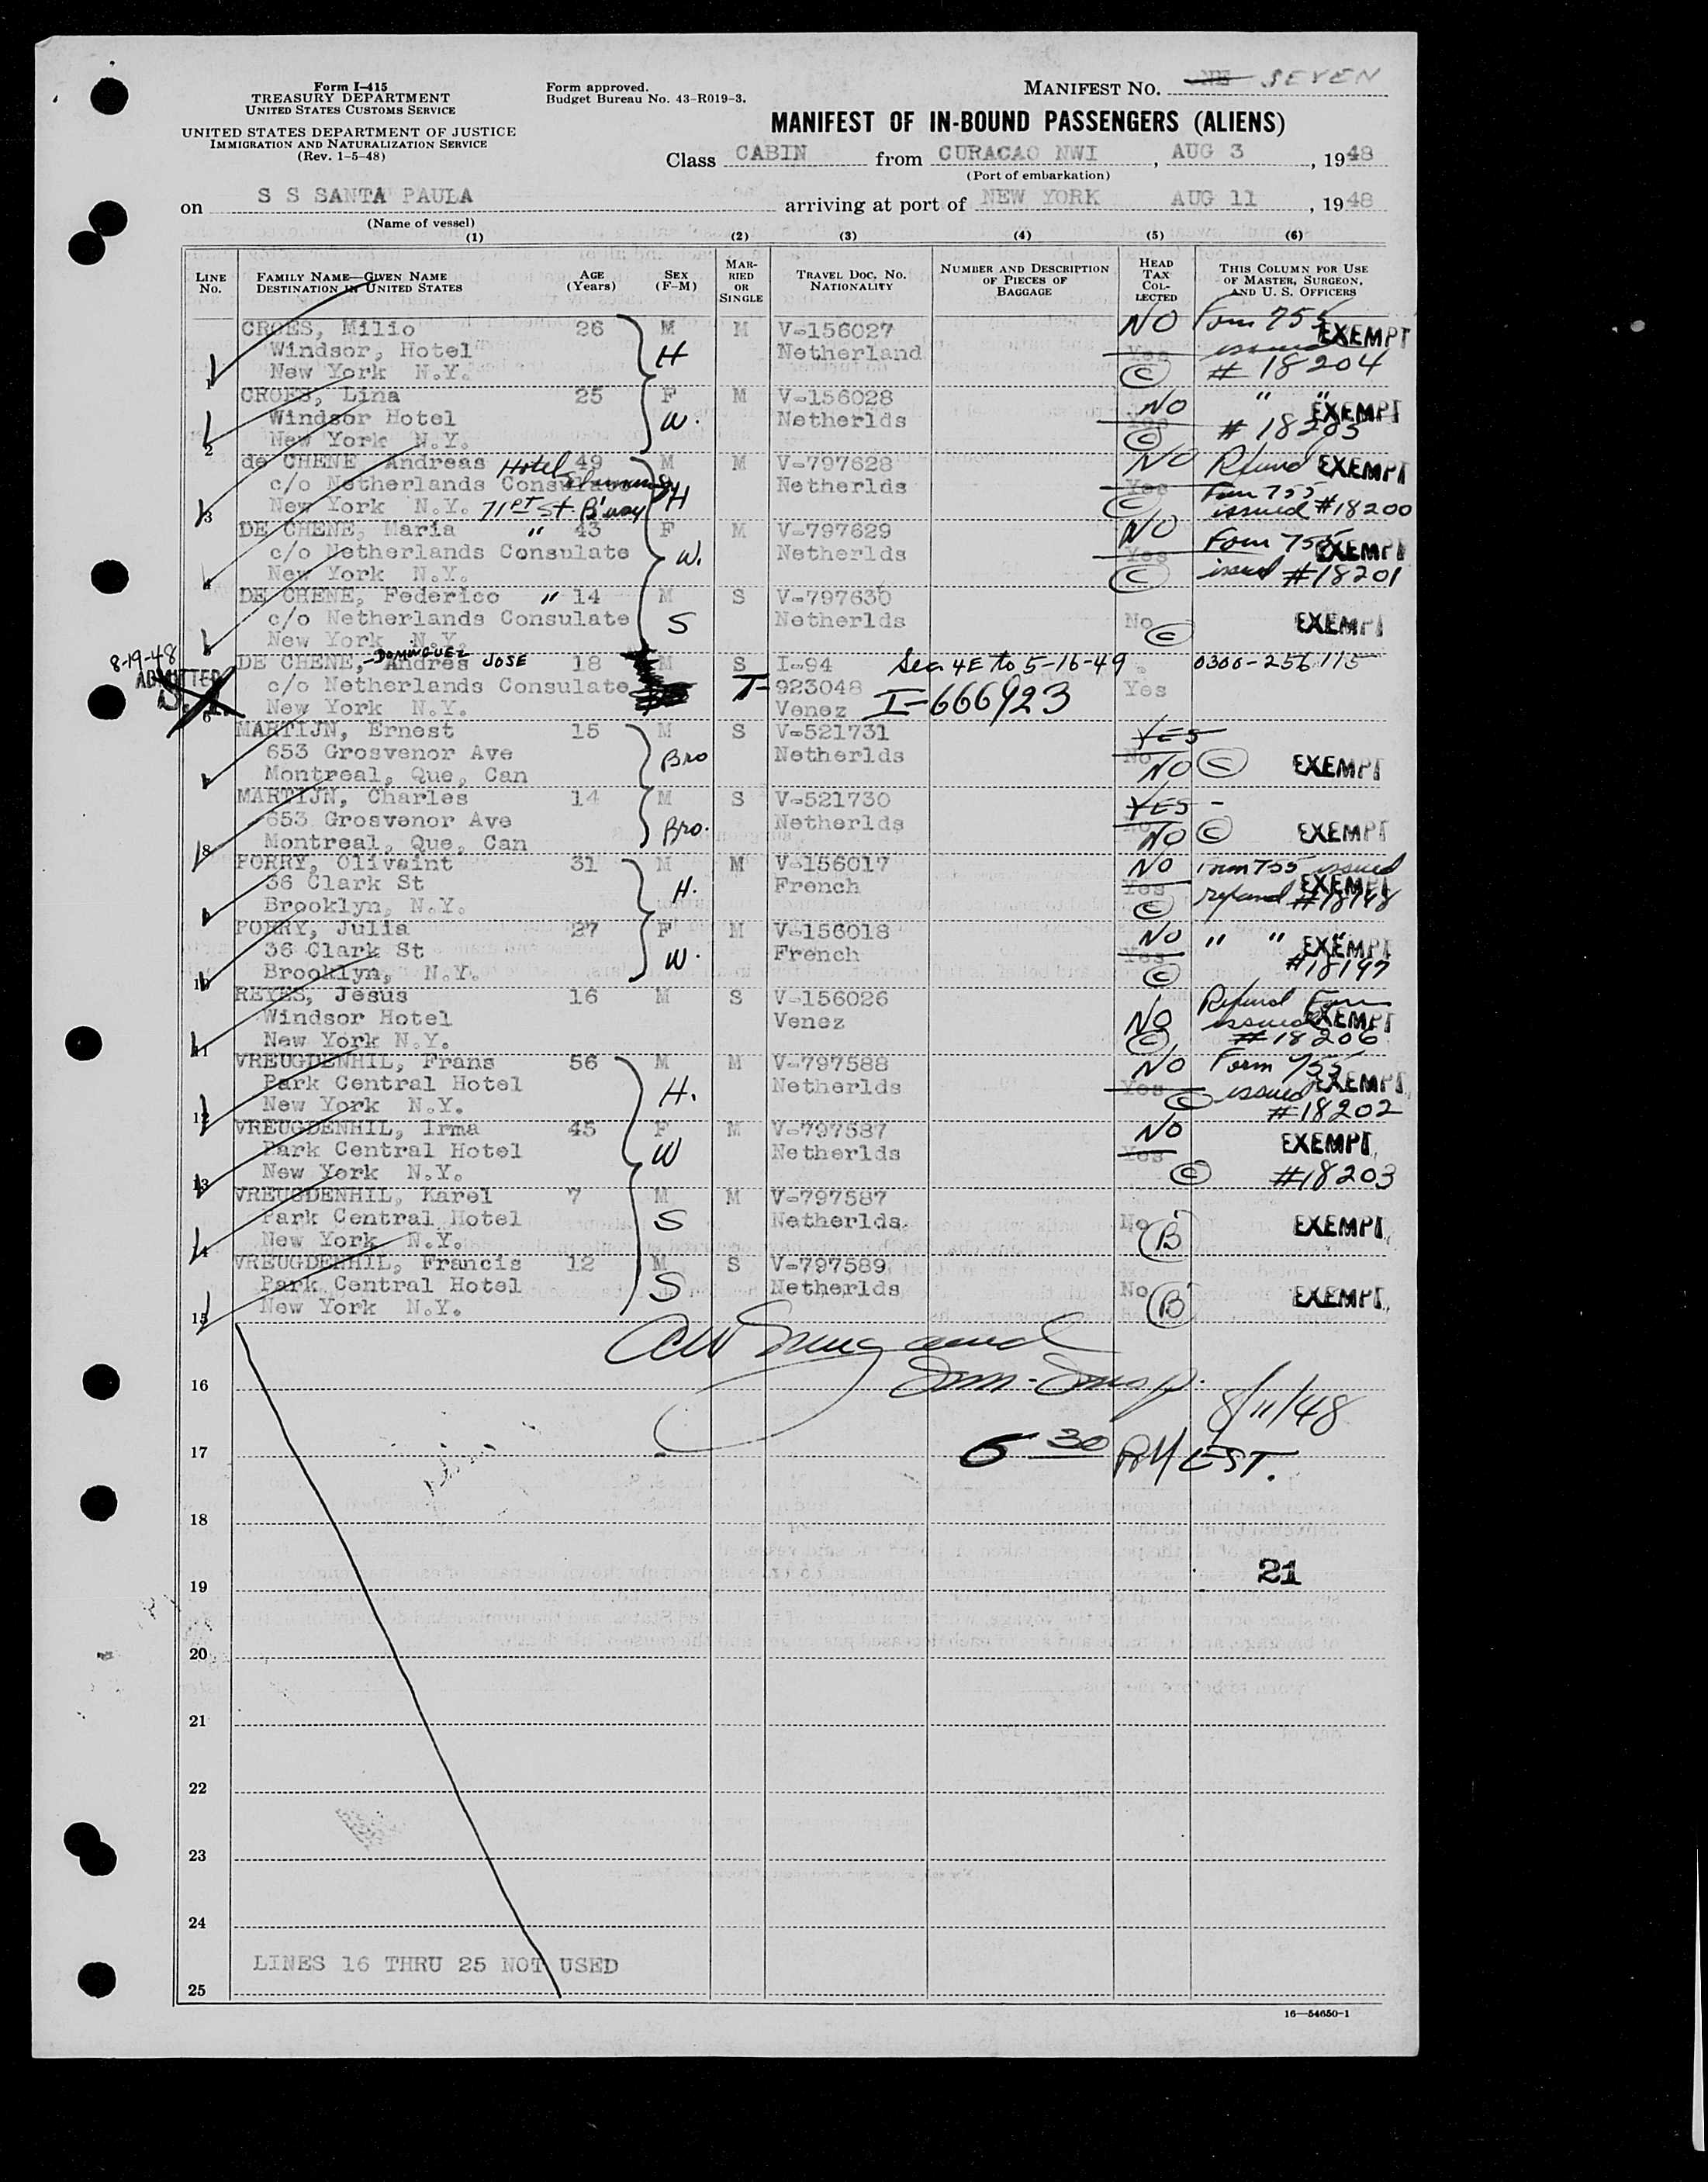 Form I-415
TREASURY DEPARTMENT
UNITED STATES CUSTOMS SERVICE
UNITED STATES DEPARTMENT OF JUSTICE
IMMIGRATION AND NATURALIZATION SERVICE
(Rev. 1-5-48)
Form approved.
Budget Bureau No. 43-R019-3.
MANIFEST NO. SEVEN
MANIFEST OF IN-BOUND PASSENGERS (ALIENS)
Class CABIN from CURACAO NWI, AUG 3, 1948
(Port of embarkation)
on S S SANTA PAULA arriving at port of NEW YORK AUG 11, 1948
(Name of vessel)
(1) (2) (3) (4) (5) (6)
LINE NO. FAMILY NAME—GIVEN NAME DESTINATION IN UNITED STATES AGE (Years) SEX (F-M) MARRIED OR SINGLE TRAVEL DOC. NO. NATIONALITY NUMBER AND DESCRIPTION OF PIECES OF BAGGAGE HEAD TAX COLLECTED THIS COLUMN FOR USE OF MASTER, SURGEON, AND U. S. OFFICERS
CROES, Milio 26 M M V-156027 NO Form 755 EXEMPT
Windsor, Hotel H Netherland Yes issued
1 New York N.Y. C # 18204
CROES, Lina 25 F M V-156028 NO " " EXEMPT
Windsor Hotel W. Netherlds Yes # 18205
2 New York N.Y. C
de CHENE Andreas Hotel 49 M M V-797628 NO Refund EXEMPT
c/o Netherlands Consulate H Netherlds Yes Form 755
3 New York N.Y. 71st St. B'way C issued #18200
DE CHENE, Maria " 43 F M V-797629 NO Form 755 EXEMPT
c/o Netherlands Consulate W. Netherlds Yes
New York N.Y. C issued #18201
DE CHENE, Federico " 14 M S V-797630
c/o Netherlands Consulate S Netherlds No C EXEMPT
New York N.Y.
8-19-48 DOMINGUEZ
ADMITTED DE CHENE, Andres JOSE 18 M S I-94 Sec 4E to 5-16-49 0300-256115
c/o Netherlands Consulate T-923048 I-666923 Yes
6 New York N.Y. Venez
MARTIJN, Ernest 15 M S V-521731 YES
653 Grosvenor Ave Bro Netherlds No
Montreal, Que, Can NO C EXEMPT
MARTIJN, Charles 14 M S V-521730 YES -
653 Grosvenor Ave Bro. Netherlds No
8 Montreal, Que, Can NO C EXEMPT
PORRY, Olivaint 31 M M V-156017 NO Form 755 issued
36 Clark St H. French Yes EXEMPT
Brooklyn, N.Y. C refund #18198
PORRY, Julia 27 F M V-156018 NO " " EXEMPT
36 Clark St W. French Yes
10 Brooklyn, N.Y. C #18197
REYES, Jesus 16 M S V-156026 Refund Form
Windsor Hotel Venez NO issued EXEMPT
11 New York N.Y. C #18206
VREUGDENHIL, Frans 56 M M V-797588 NO Form 755
Park Central Hotel H. Netherlds Yes C issued EXEMPT
12 New York N.Y. #18202
VREUGDENHIL, Irma 45 F M V-797587 NO
Park Central Hotel W Netherlds Yes EXEMPT
13 New York N.Y. C #18203
VREUGDENHIL, Karel 7 M M V-797587
Park Central Hotel S Netherlds No B EXEMPT
New York N.Y.
VREUGDENHIL, Francis 12 M S V-797589
Park Central Hotel S Netherlds No B EXEMPT
15 New York N.Y.
16 8/11/48
17 6 30 PM EST.
18
19 21
20
21
22
23
24
LINES 16 THRU 25 NOT USED
25
16—54650-1